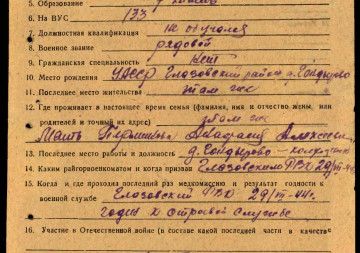 5. Образование 7 классов
6. На ВУС 133
7. Должностная квалификация не обучался
8. Военное звание рядовой
9. Гражданская специальность нет
10. Место рождения УАССР Глазовский район д. Гондырево
11. Последнее место жительства там же
12. Где проживает в настоящее время семья (фамилия, имя и отчество жены, или
родителей и точный их адрес) там же
Мать
13. Последнее место работы и должность д. Гондырево - колхозник
14. Каким райгорвоенкоматом и когда призван Глазовским РВК 29/VII-44г
15. Когда и где проходил последний раз медкомиссию и результат годности к
военной службе Глазовский РВК 29/VII-44г.
годен к строевой службе
16. Участие в Отечественной войне (в составе какой последней части в качестве